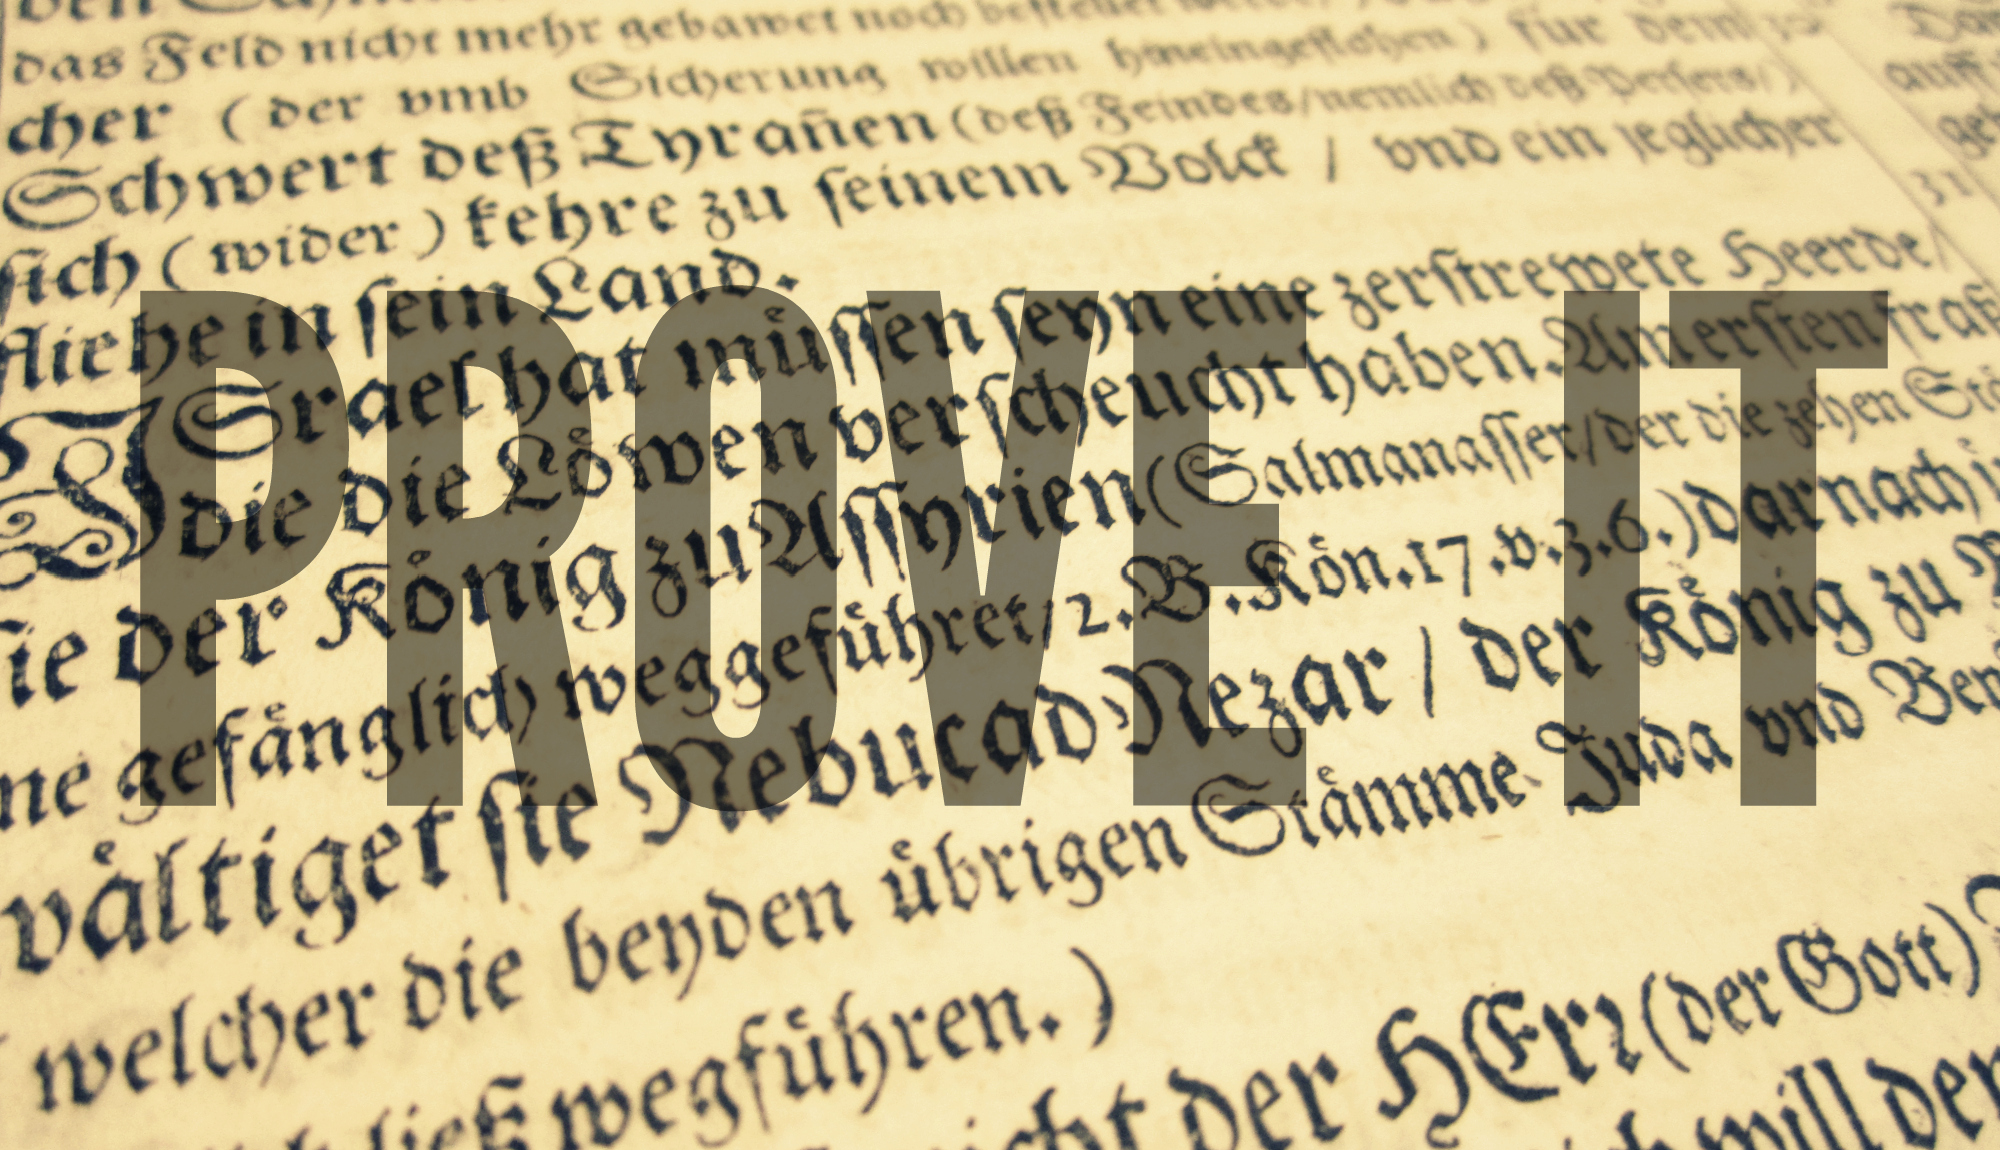 das Feld nicht mehr gebawet noch bestellet
cher (der vmb Sicherung willen hineingeflohen) für dem
Schwert deß Tyrañen (deß Feindes/nemlich deß Persers/)
sich (wider) kehre zu seinem Volck / vnd ein jeglicher
fliehe in sein Land.
31
ISrael hat müssen seyn eine zerstrewete Heerde/
die die Löwen verscheucht haben. Am ersten fraß
sie der König zu Assyrien (Salmanasser/der die zehen
gefänglich weggeführet/2.B.Kön.17.v.3.6.) darnach
wältiget sie NebucadNezar / der König zu
welcher die beyden übrigen Stämme Juda vnd
ließ wegführen.)
der HErr (der Gott)
will
PROVE IT